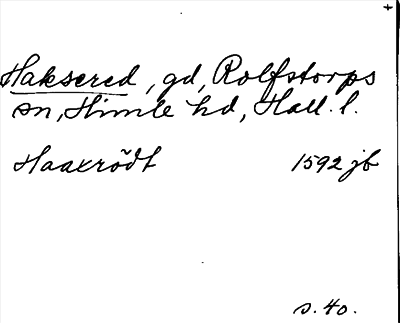 Haksered, gd, Rolfstorps
sn, Himle hd, Hall. l.
Haaxrödt 1592 jb
s. 40.